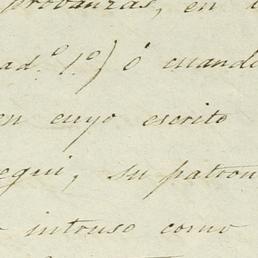 probanzas, en
ad.º 1.º) ó cuando
en cuyo escrito
egui, su patron
intruso como